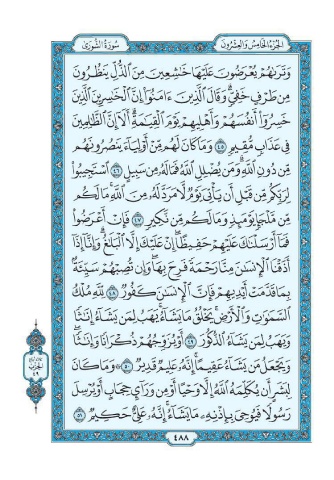 الجزء الخامس والعشرون
سورة الشورى
وَتَرَىٰهُمْ يُعْرَضُونَ عَلَيْهَا خَٰشِعِينَ مِنَ ٱلذُّلِّ يَنظُرُونَ
مِن طَرْفٍ خَفِىٍّ ۗ وَقَالَ ٱلَّذِينَ ءَامَنُوٓا۟ إِنَّ ٱلْخَٰسِرِينَ ٱلَّذِينَ
خَسِرُوٓا۟ أَنفُسَهُمْ وَأَهْلِيهِمْ يَوْمَ ٱلْقِيَٰمَةِ ۗ أَلَآ إِنَّ ٱلظَّٰلِمِينَ
فِى عَذَابٍ مُّقِيمٍ ٤٥ وَمَا كَانَ لَهُم مِّنْ أَوْلِيَآءَ يَنصُرُونَهُم
مِّن دُونِ ٱللَّهِ ۗ وَمَن يُضْلِلِ ٱللَّهُ فَمَا لَهُۥ مِن سَبِيلٍ ٤٦ ٱسْتَجِيبُوا۟
لِرَبِّكُم مِّن قَبْلِ أَن يَأْتِىَ يَوْمٌ لَّا مَرَدَّ لَهُۥ مِنَ ٱللَّهِ ۚ مَا لَكُم
مِّن مَّلْجَإٍ يَوْمَئِذٍ وَمَا لَكُم مِّن نَّكِيرٍ ٤٧ فَإِنْ أَعْرَضُوا۟
فَمَآ أَرْسَلْنَٰكَ عَلَيْهِمْ حَفِيظًا ۖ إِنْ عَلَيْكَ إِلَّا ٱلْبَلَٰغُ ۗ وَإِنَّآ إِذَآ
أَذَقْنَا ٱلْإِنسَٰنَ مِنَّا رَحْمَةً فَرِحَ بِهَا ۖ وَإِن تُصِبْهُمْ سَيِّئَةٌۢ
بِمَا قَدَّمَتْ أَيْدِيهِمْ فَإِنَّ ٱلْإِنسَٰنَ كَفُورٌ ٤٨ لِّلَّهِ مُلْكُ
ٱلسَّمَٰوَٰتِ وَٱلْأَرْضِ ۚ يَخْلُقُ مَا يَشَآءُ ۚ يَهَبُ لِمَن يَشَآءُ إِنَٰثًا
وَيَهَبُ لِمَن يَشَآءُ ٱلذُّكُورَ ٤٩ أَوْ يُزَوِّجُهُمْ ذُكْرَانًا وَإِنَٰثًا ۖ
وَيَجْعَلُ مَن يَشَآءُ عَقِيمًا ۚ إِنَّهُۥ عَلِيمٌ قَدِيرٌ ٥٠ وَمَا كَانَ
لِبَشَرٍ أَن يُكَلِّمَهُ ٱللَّهُ إِلَّا وَحْيًا أَوْ مِن وَرَآئِ حِجَابٍ أَوْ يُرْسِلَ
رَسُولًا فَيُوحِىَ بِإِذْنِهِۦ مَا يَشَآءُ ۚ إِنَّهُۥ عَلِىٌّ حَكِيمٌ ٥١
٤٨٨